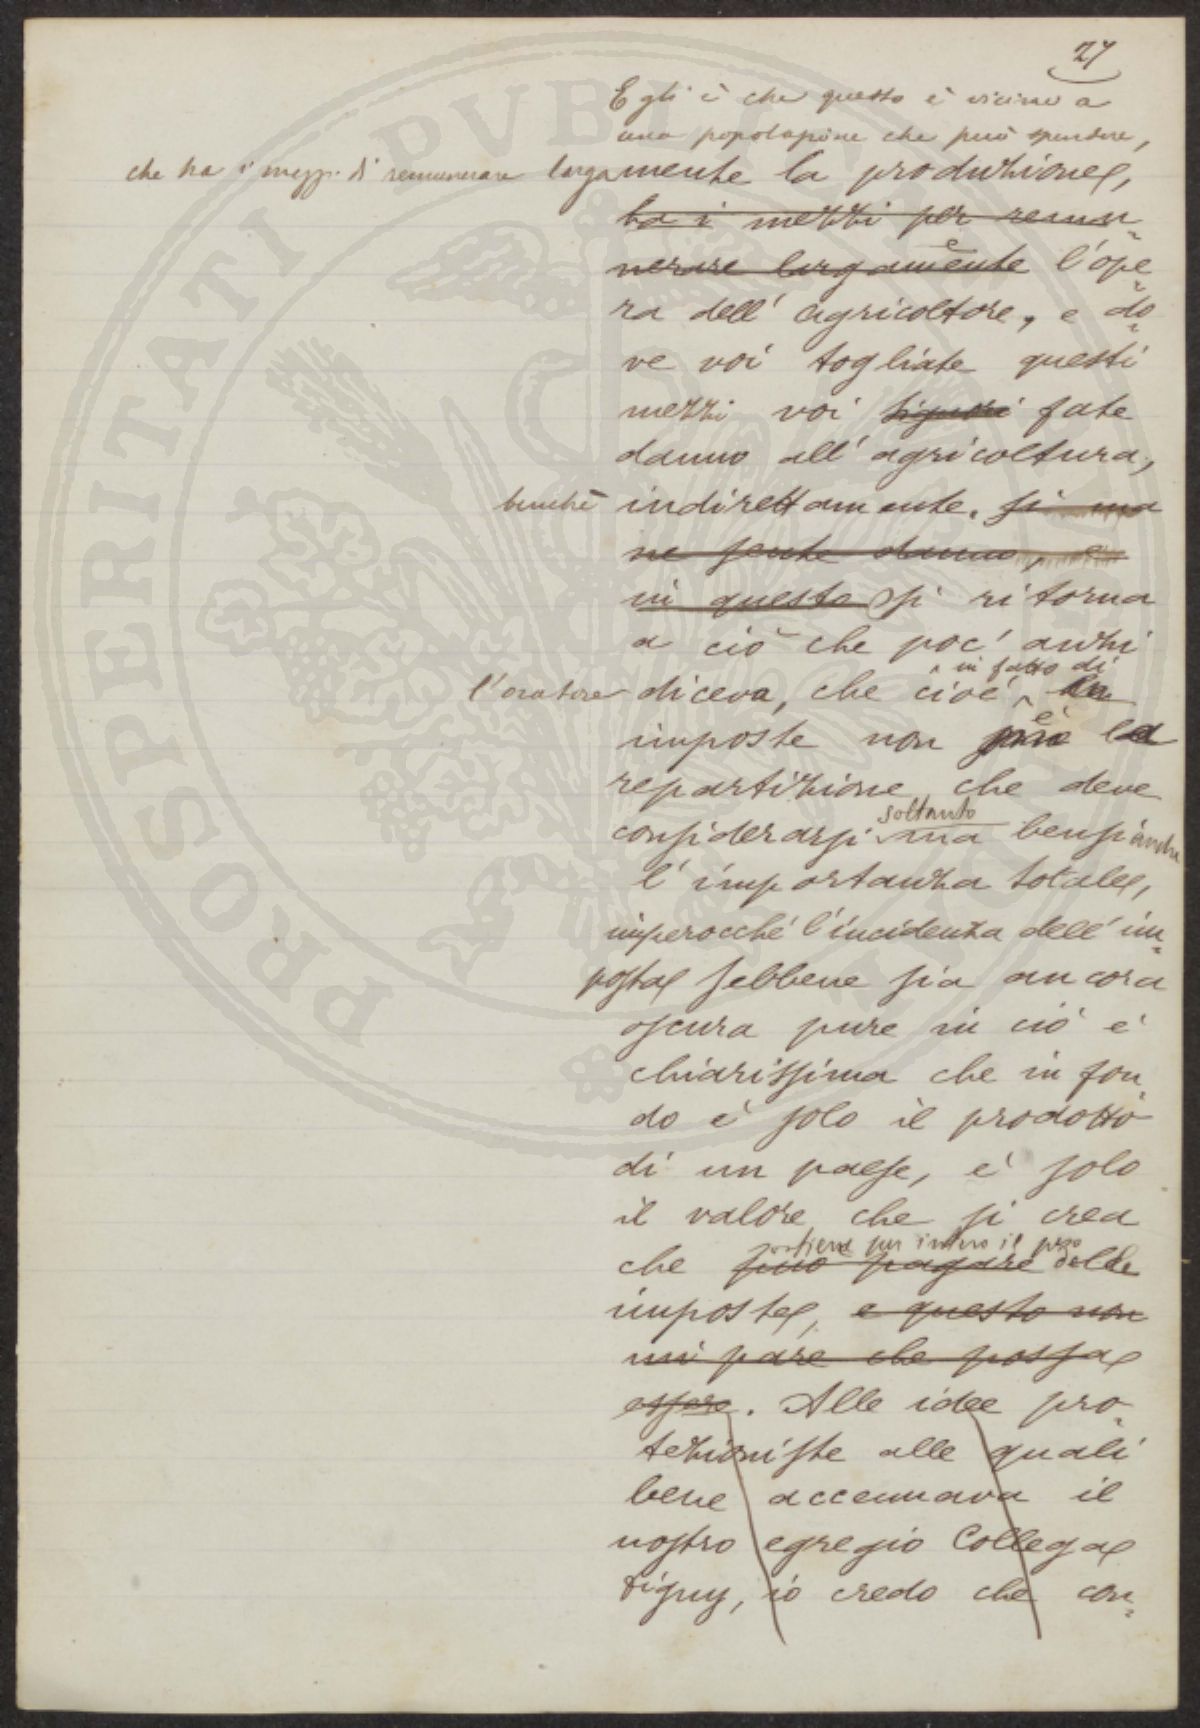 27
Egli è che questo è vicino a
una popolazione che può spendere,
che ha i mezzi di remunerare largamente la produzione,
ha i mezzi per remu=
nerare largamente l'ope=
ra dell' agricoltore, e do=
ve voi togliate questi
mezzi voi signori fate
danno all' agricoltura,
benchè indirettamente. si ma
ne sente danno, e
in questo si ritorna
a ciò che poc' anzi
in fatto di
l'oratore diceva, che cioè le
imposte non è la
repartizione che deve
soltanto
considerarsi ma bensì anche
l' importanza totale,
imperocchè l'incidenza dell' im=
posta sebbene sia ancora
oscura pure in ciò è
chiarissima che in fon=
do è solo il prodotto
di un paese, è solo
il valore che si crea
sostiene per intero il peso
che può pagare delle
imposte, e questo non
mi pare che possa
essere. Alle idee pro=
tezioniste alle quali
bene accennava il
nostro egregio Collega
Tigny, io credo che con=
PROSPERITATI PVBLICAE